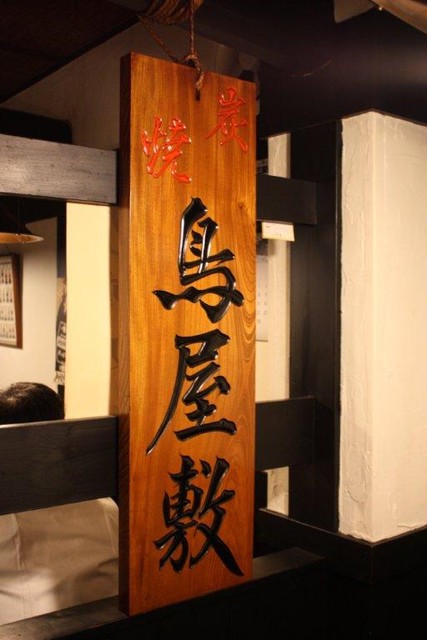 炭焼
鳥屋敷